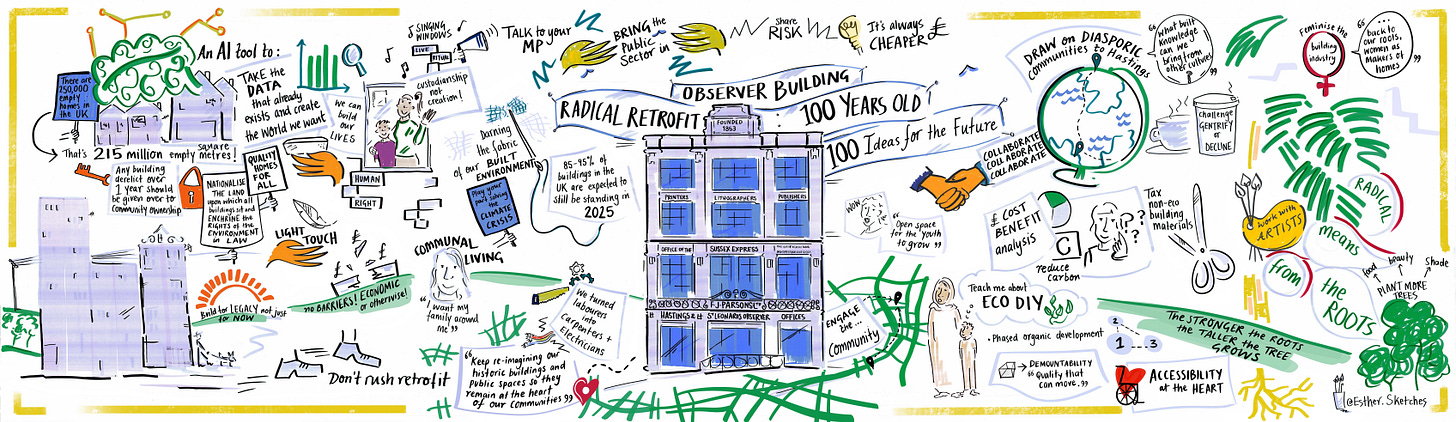 An AI tool to:
There are
250,000
empty
homes in
the UK
That's 215 million empty square metres!
TAKE the
DATA
that already
exists and create
the World we want
We can
build
our
LIVES
SINGING
WINDOWS
LIVE
RITUAL
custodianship
not
creation!
HUMAN
RIGHT
TALK to your
MP
BRING the
Public
Sector in
Share
RISK
It's always
CHEAPER
£
Any building
derelict over
1 year should
be given over to
community ownership
NATIONALISE
THE LAND
upon which all
buildings sit and
ENCHRINE the
RIGHTS of the
ENVIRONMENT
in LAW
QUALITY
HOMES
FOR
ALL
LIGHT
TOUCH
£
£
£
Build for LEGACY not just
for NOW
no BARRIERS! ECONOMIC
or otherwise!
Don't rush retrofit
Darning
the fabric
of our BUILT
ENVIRONMENT
Play your
part solving
the
CLIMATE
CRISIS
85-95% of
buildings in the
UK are expected to
still be standing in
2025
COMMUNAL
LIVING
"I want my
family around
me"
We turned
labourers
into
Carpenters +
Electricians
"Keep re-imagining our
historic buildings and
Public spaces so they
remain at the heart
of our communities"
RADICAL RETROFIT
OBSERVER BUILDING
:
100 YEARS OLD
100 Ideas for the Future
FOUNDED
1853
PRINTERS
LITHOGRAPHERS
PUBLISHERS
OFFICE OF THE
SUSSEX EXPRESS
F.J. PARSONS LTD
HASTINGS & ST LEONARDS OBSERVER OFFICES
WOW
"Open space
for the youth
to grow"
COLLABORATE
COLLABORATE
COLLABORATE
DRAW on DIASPORIC
Communities to Hastings
"What built
knowledge
can we
bring from
other cultures"
challenge
GENTRIFY
or
DECLINE
£ COST
BENEFIT
analysis
C
reduce
carbon
???
Tax
non-eco
building
materials
ENGAGE
the...
Community
Teach me about
ECO DIY
• Phased organic development
1
2
3
DEMOUNTABILITY
is Quality that
can move."
ACCESSIBILITY
at the HEART
The STRONGER the ROOTS
the TALLER the TREE
GROWS
Work with
ARTISTS
Feminise the
building
industry
"...
back to
our roots,
women as
makers of
homes"
RADICAL
means
from
the
ROOTS
food
beauty
Shade
PLANT MORE
TREES
@Esther.Sketches